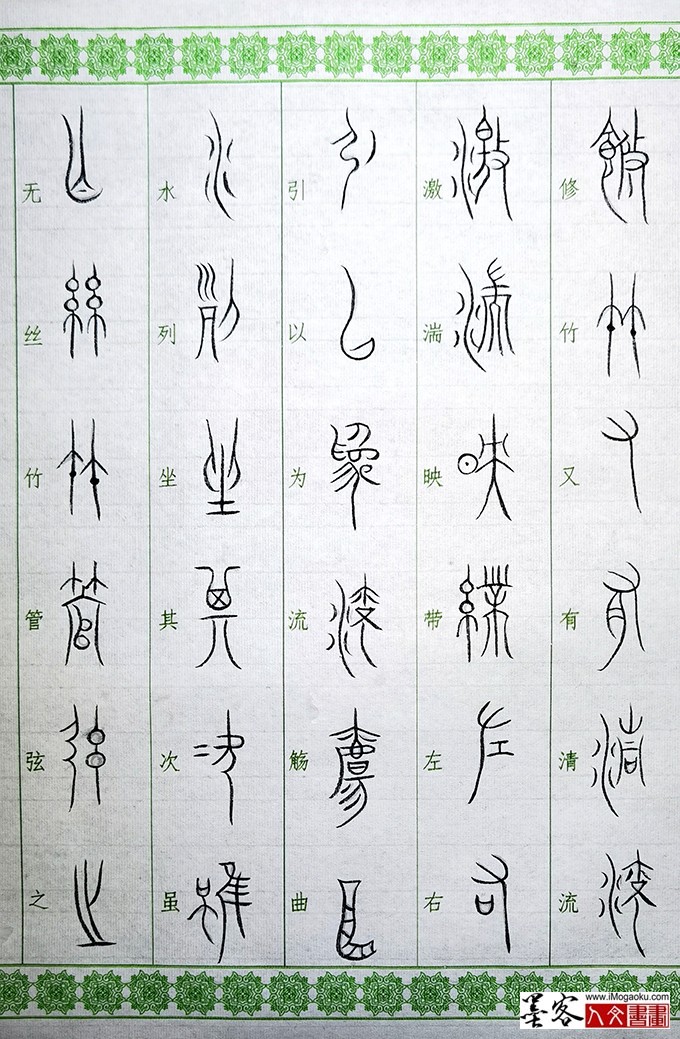 修竹又有清流
激湍映带左右
引以为流觞曲
水列坐其次虽
无丝竹管弦之
墨客
www.iMogaoku.com
人文書畫